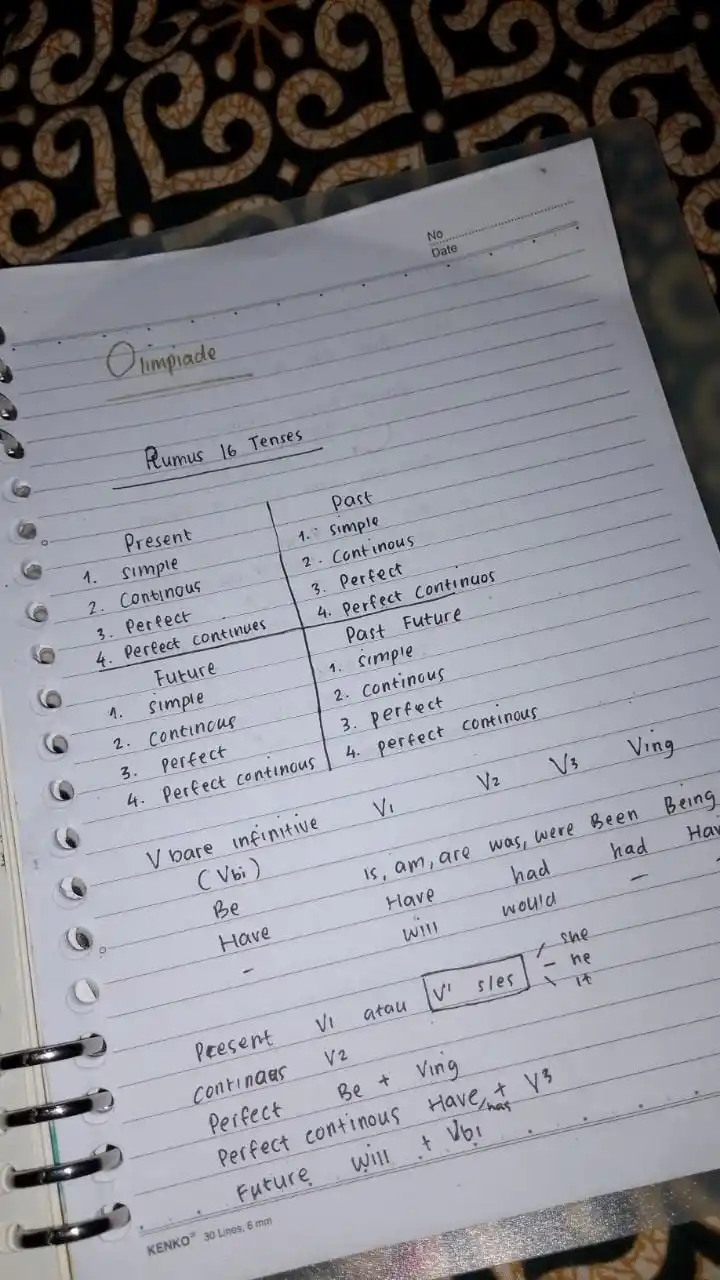 No
Date
Olimpiade
Rumus 16 Tenses
Present
1. simple
2. Continous
3. Perfect
4. Perfect continues
Past
1. simple
2. Continous
3. Perfect
4. Perfect Continuos
Future
1. simple
2. continous
3. Perfect
4. Perfect continous
Past Future
1. simple
2. continous
3. perfect
4. perfect continous
V bare infinitive V1 V2 V3 Ving
(Vbi)
Be is, am, are was, were Been Being
Have Have had had Hav
- will would - -
Present V1 atau V1 s/es she
he
it
continous V2
Perfect Be + Ving
Perfect continous Have/has + V3
Future will + Vbi
KENKO® 30 Lines, 6 mm